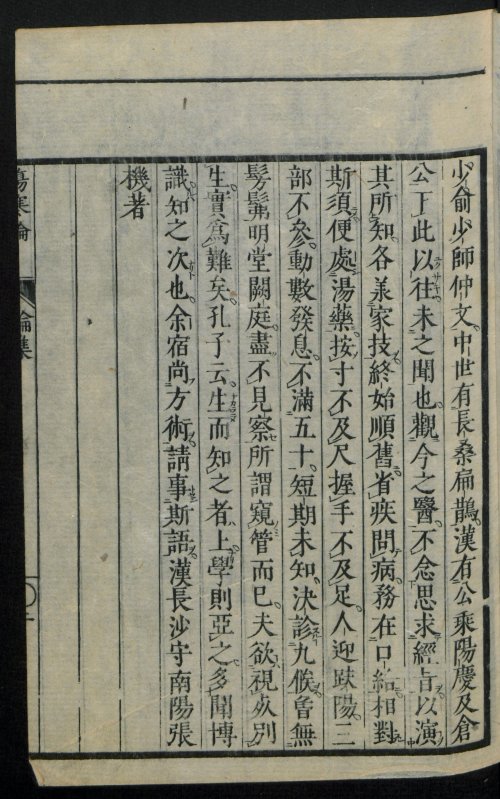 少俞少師仲文中世有長桑扁鵲漢有公乘陽慶及倉
公下此以往未之聞也觀今之醫不念思求經旨以演
其所知各羕家技終始順舊省疾問病務在口給相對
斯須便處湯藥按寸不及尺握手不及足人迎趺陽三
部不參動數發息不滿五十短期未知決診九候曾無
髣髴明堂闕庭盡不見察所謂窺管而已夫欲視死別
生實爲難矣孔子云生而知之者上學則亞之多聞博
識知之次也余宿尚方術請事斯語漢長沙守南陽張
機著
傷寒論
論集